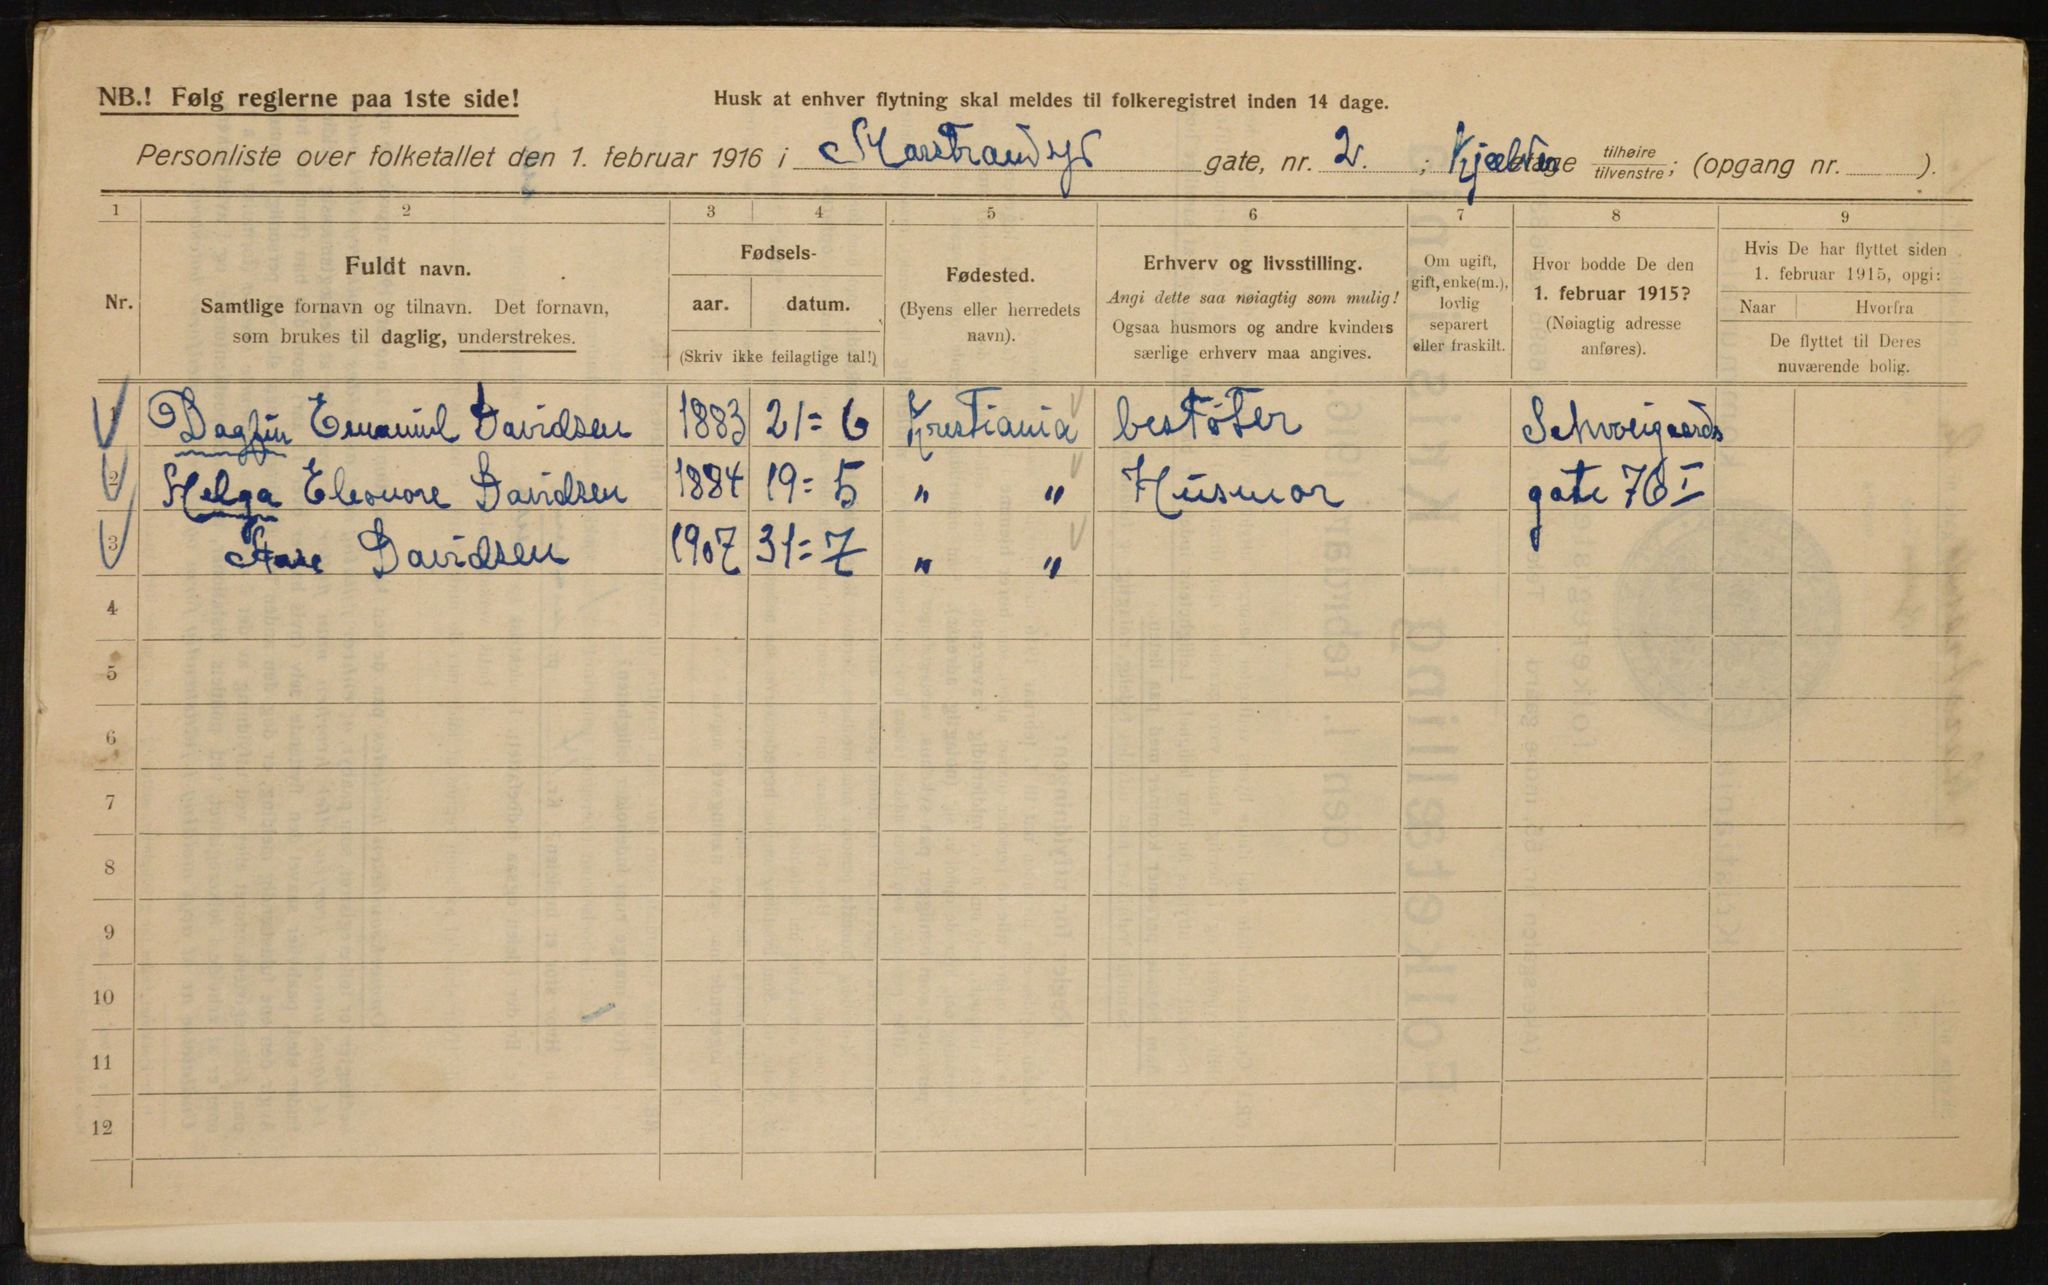 NB.! Følg reglerne paa 1ste side!
Husk at enhver flytning skal meldes til folkeregistret inden 14 dage.
Personliste over folketallet den 1. februar 1916 i Marstrandsgt gate, nr. 2. ; Kjælder etage tilhøire/tilvenstre; (opgang nr. ).
1 2 3 4 5 6 7 8 9
Nr.
Fuldt navn.
Samtlige fornavn og tilnavn. Det fornavn,
som brukes til daglig, understrekes.
Fødsels-
aar. datum.
(Skriv ikke feilagtige tal!)
Fødested.
(Byens eller herredets
navn).
Erhverv og livsstilling.
Angi dette saa nøiagtig som mulig!
Ogsaa husmors og andre kvinders
særlige erhverv maa angives.
Om ugift,
gift, enke(m.),
lovlig
separert
eller fraskilt.
Hvor bodde De den
1. februar 1915?
(Nøiagtig adresse
anføres).
Hvis De har flyttet siden
1. februar 1915, opgi:
Naar Hvorfra
De flyttet til Deres
nuværende bolig.
1 Dagfin Emanuel Davidsen 1883 21=6 Kristiania bestøter Schweigaards
2 Helga Eleonore Davidsen 1884 19=5 " " Husmor gate 76 I
3 Aase Davidsen 1907 31=7 " "
4
5
6
7
8
9
10
11
12